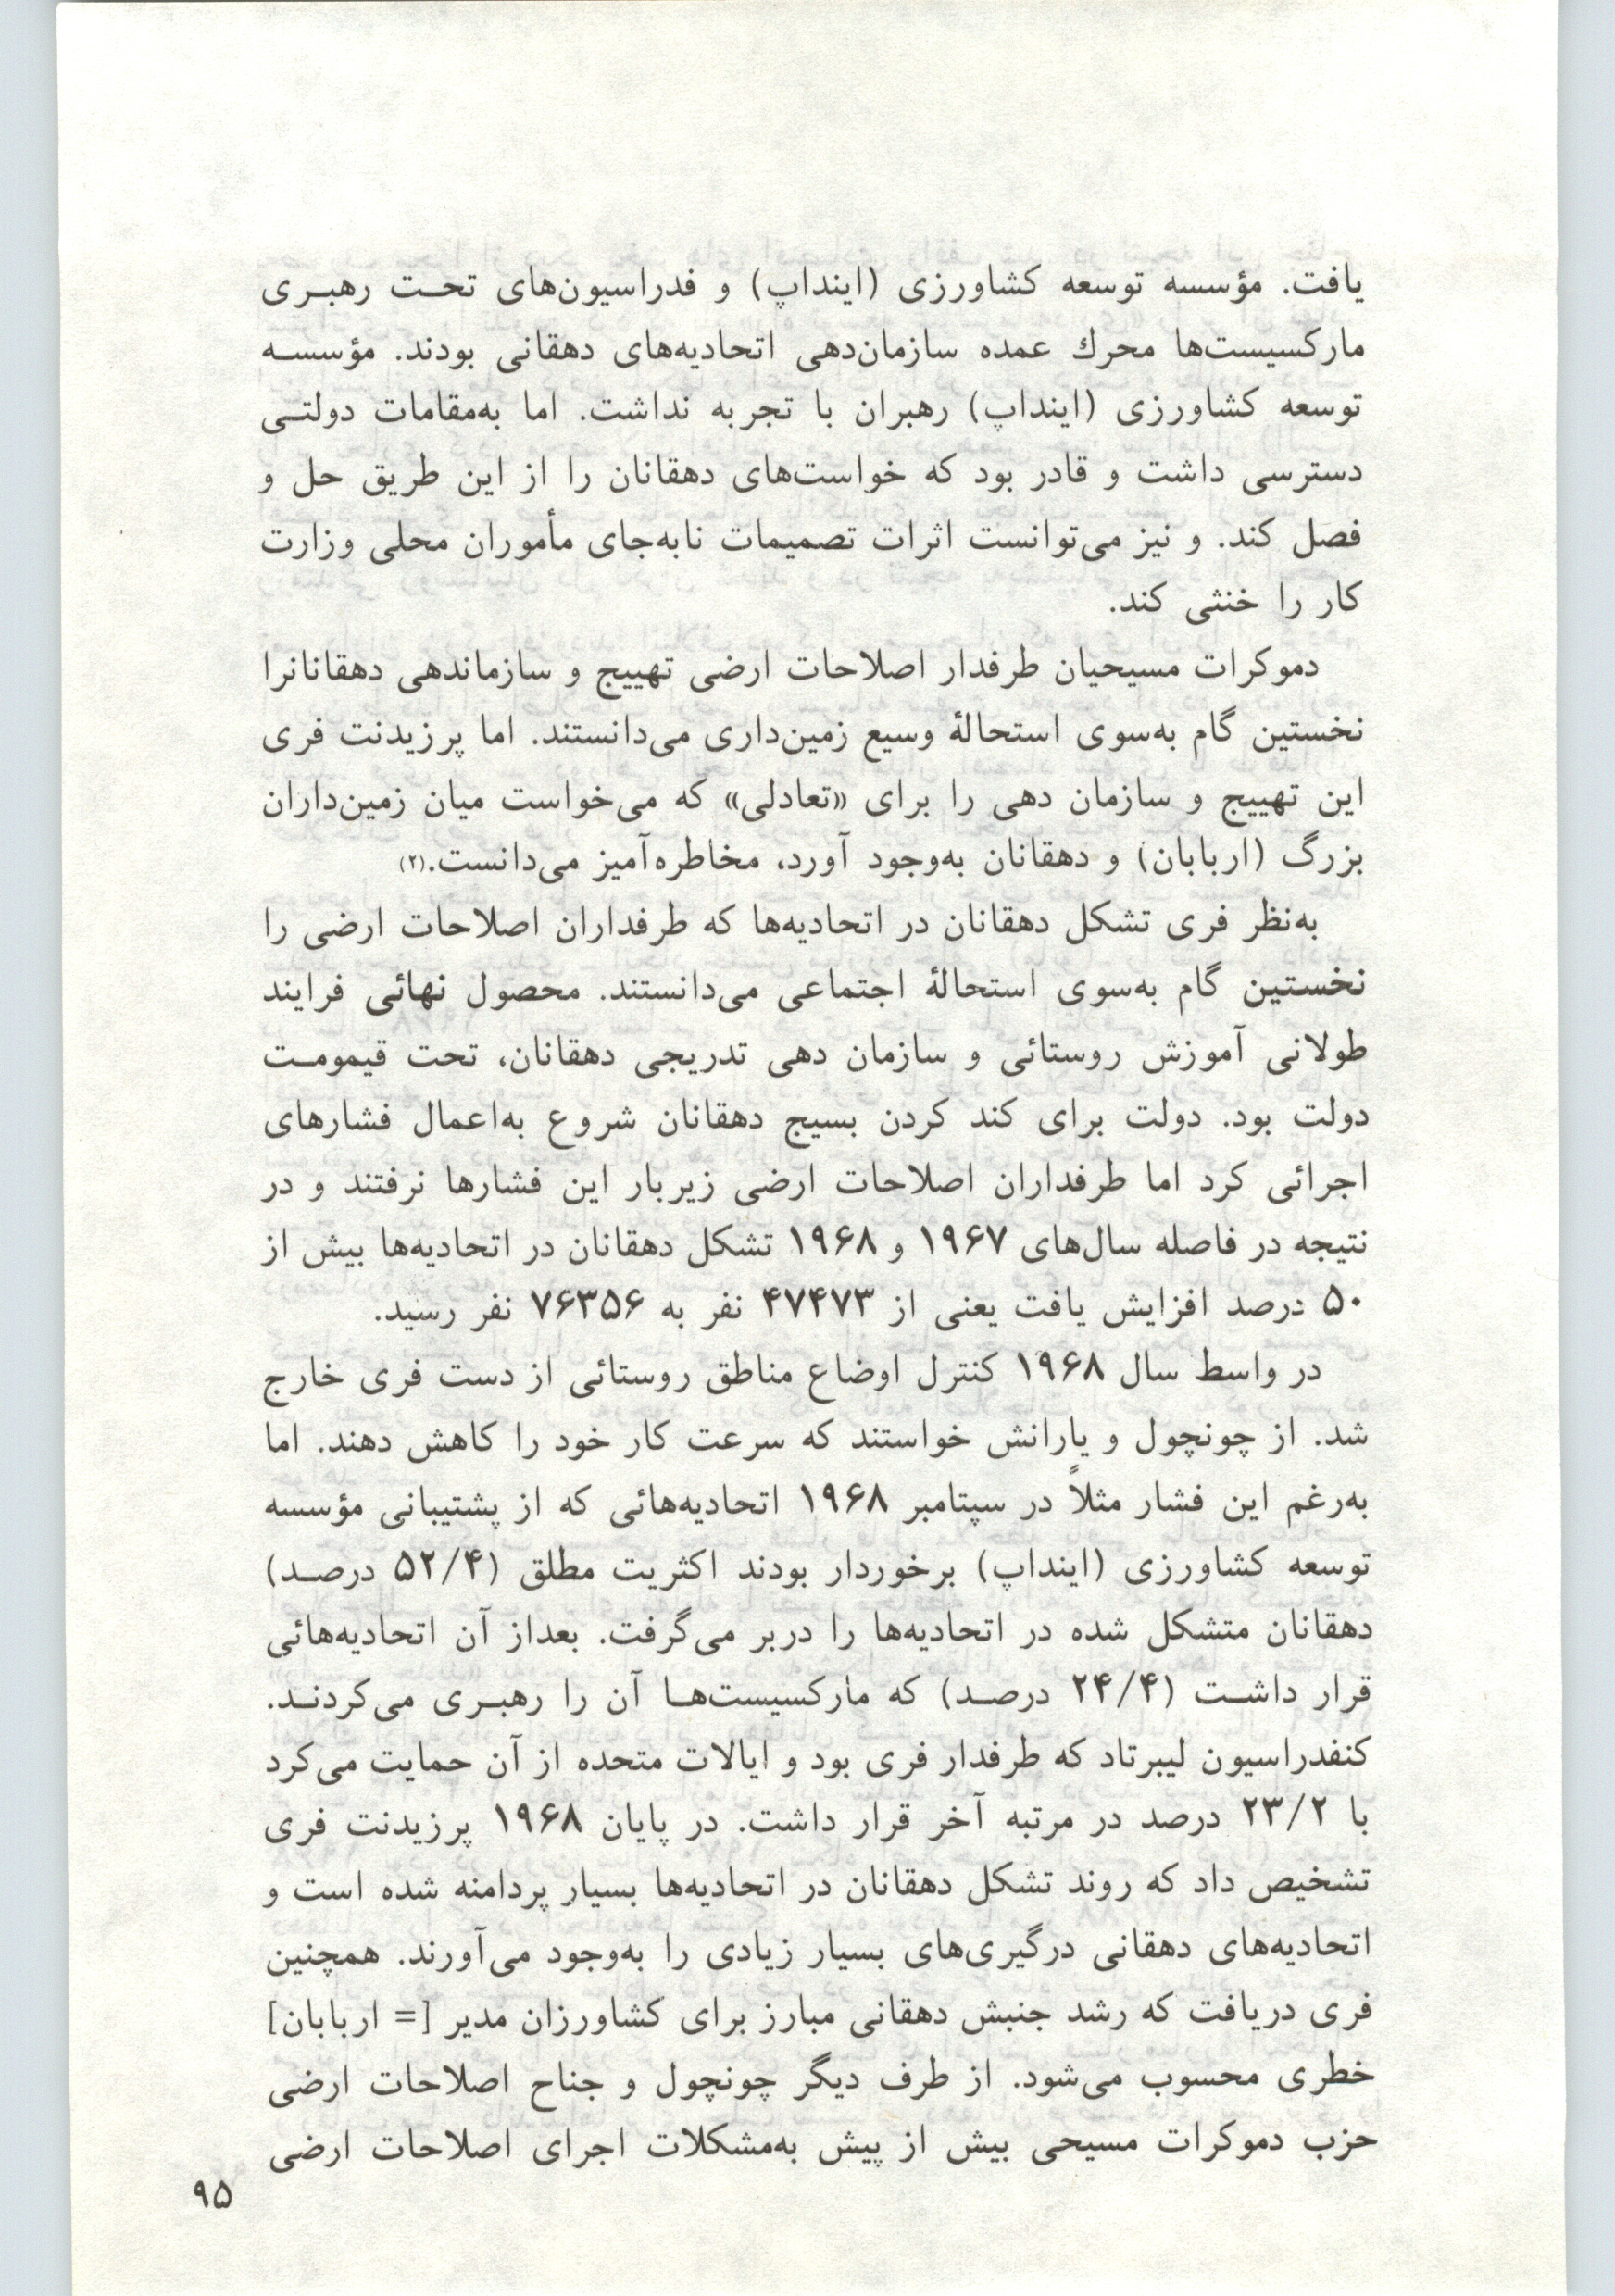 یافت. مؤسسه توسعه کشاورزی (اینداپ) و فدراسیون‌های تحت رهبری
مارکسیست‌ها محرك عمده سازمان‌دهی اتحادیه‌های دهقانی بودند. مؤسسه
توسعه کشاورزی (اینداپ) رهبران با تجربه نداشت. اما به‌مقامات دولتی
دسترسی داشت و قادر بود که خواست‌های دهقانان را از این طریق حل و
فصل کند. و نیز می‌توانست اثرات تصمیمات نابه‌جای مأموران محلی وزارت
کار را خنثی کند.
دموکرات مسیحیان طرفدار اصلاحات ارضی تهییج و سازماندهی دهقانانرا
نخستین گام به‌سوی استحالهٔ وسیع زمین‌داری می‌دانستند. اما پرزیدنت فری
این تهییج و سازمان دهی را برای «تعادلی» که می‌خواست میان زمین‌داران
بزرگ (اربابان) و دهقانان به‌وجود آورد، مخاطره‌آمیز می‌دانست.(۲)
به‌نظر فری تشکل دهقانان در اتحادیه‌ها که طرفداران اصلاحات ارضی را
نخستین گام به‌سوی استحالهٔ اجتماعی می‌دانستند. محصول نهائی فرایند
طولانی آموزش روستائی و سازمان دهی تدریجی دهقانان، تحت قیمومت
دولت بود. دولت برای کند کردن بسیج دهقانان شروع به‌اعمال فشارهای
اجرائی کرد اما طرفداران اصلاحات ارضی زیربار این فشارها نرفتند و در
نتیجه در فاصله سال‌های ۱۹۶۷ و ۱۹۶۸ تشکل دهقانان در اتحادیه‌ها بیش از
۵۰ درصد افزایش یافت یعنی از ۴۷۴۷۳ نفر به ۷۶۳۵۶ نفر رسید.
در واسط سال ۱۹۶۸ کنترل اوضاع مناطق روستائی از دست فری خارج
شد. از چونچول و یارانش خواستند که سرعت کار خود را کاهش دهند. اما
به‌رغم این فشار مثلاً در سپتامبر ۱۹۶۸ اتحادیه‌هائی که از پشتیبانی مؤسسه
توسعه کشاورزی (اینداپ) برخوردار بودند اکثریت مطلق (۵۲/۴ درصد)
دهقانان متشکل شده در اتحادیه‌ها را دربر می‌گرفت. بعداز آن اتحادیه‌هائی
قرار داشت (۲۴/۴ درصد) که مارکسیست‌ها آن را رهبری می‌کردند.
کنفدراسیون لیبرتاد که طرفدار فری بود و ایالات متحده از آن حمایت می‌کرد
با ۲۳/۲ درصد در مرتبه آخر قرار داشت. در پایان ۱۹۶۸ پرزیدنت فری
تشخیص داد که روند تشکل دهقانان در اتحادیه‌ها بسیار پردامنه شده است و
اتحادیه‌های دهقانی درگیری‌های بسیار زیادی را به‌وجود می‌آورند. همچنین
فری دریافت که رشد جنبش دهقانی مبارز برای کشاورزان مدیر [= اربابان]
خطری محسوب می‌شود. از طرف دیگر چونچول و جناح اصلاحات ارضی
حزب دموکرات مسیحی بیش از پیش به‌مشکلات اجرای اصلاحات ارضی
۹۵